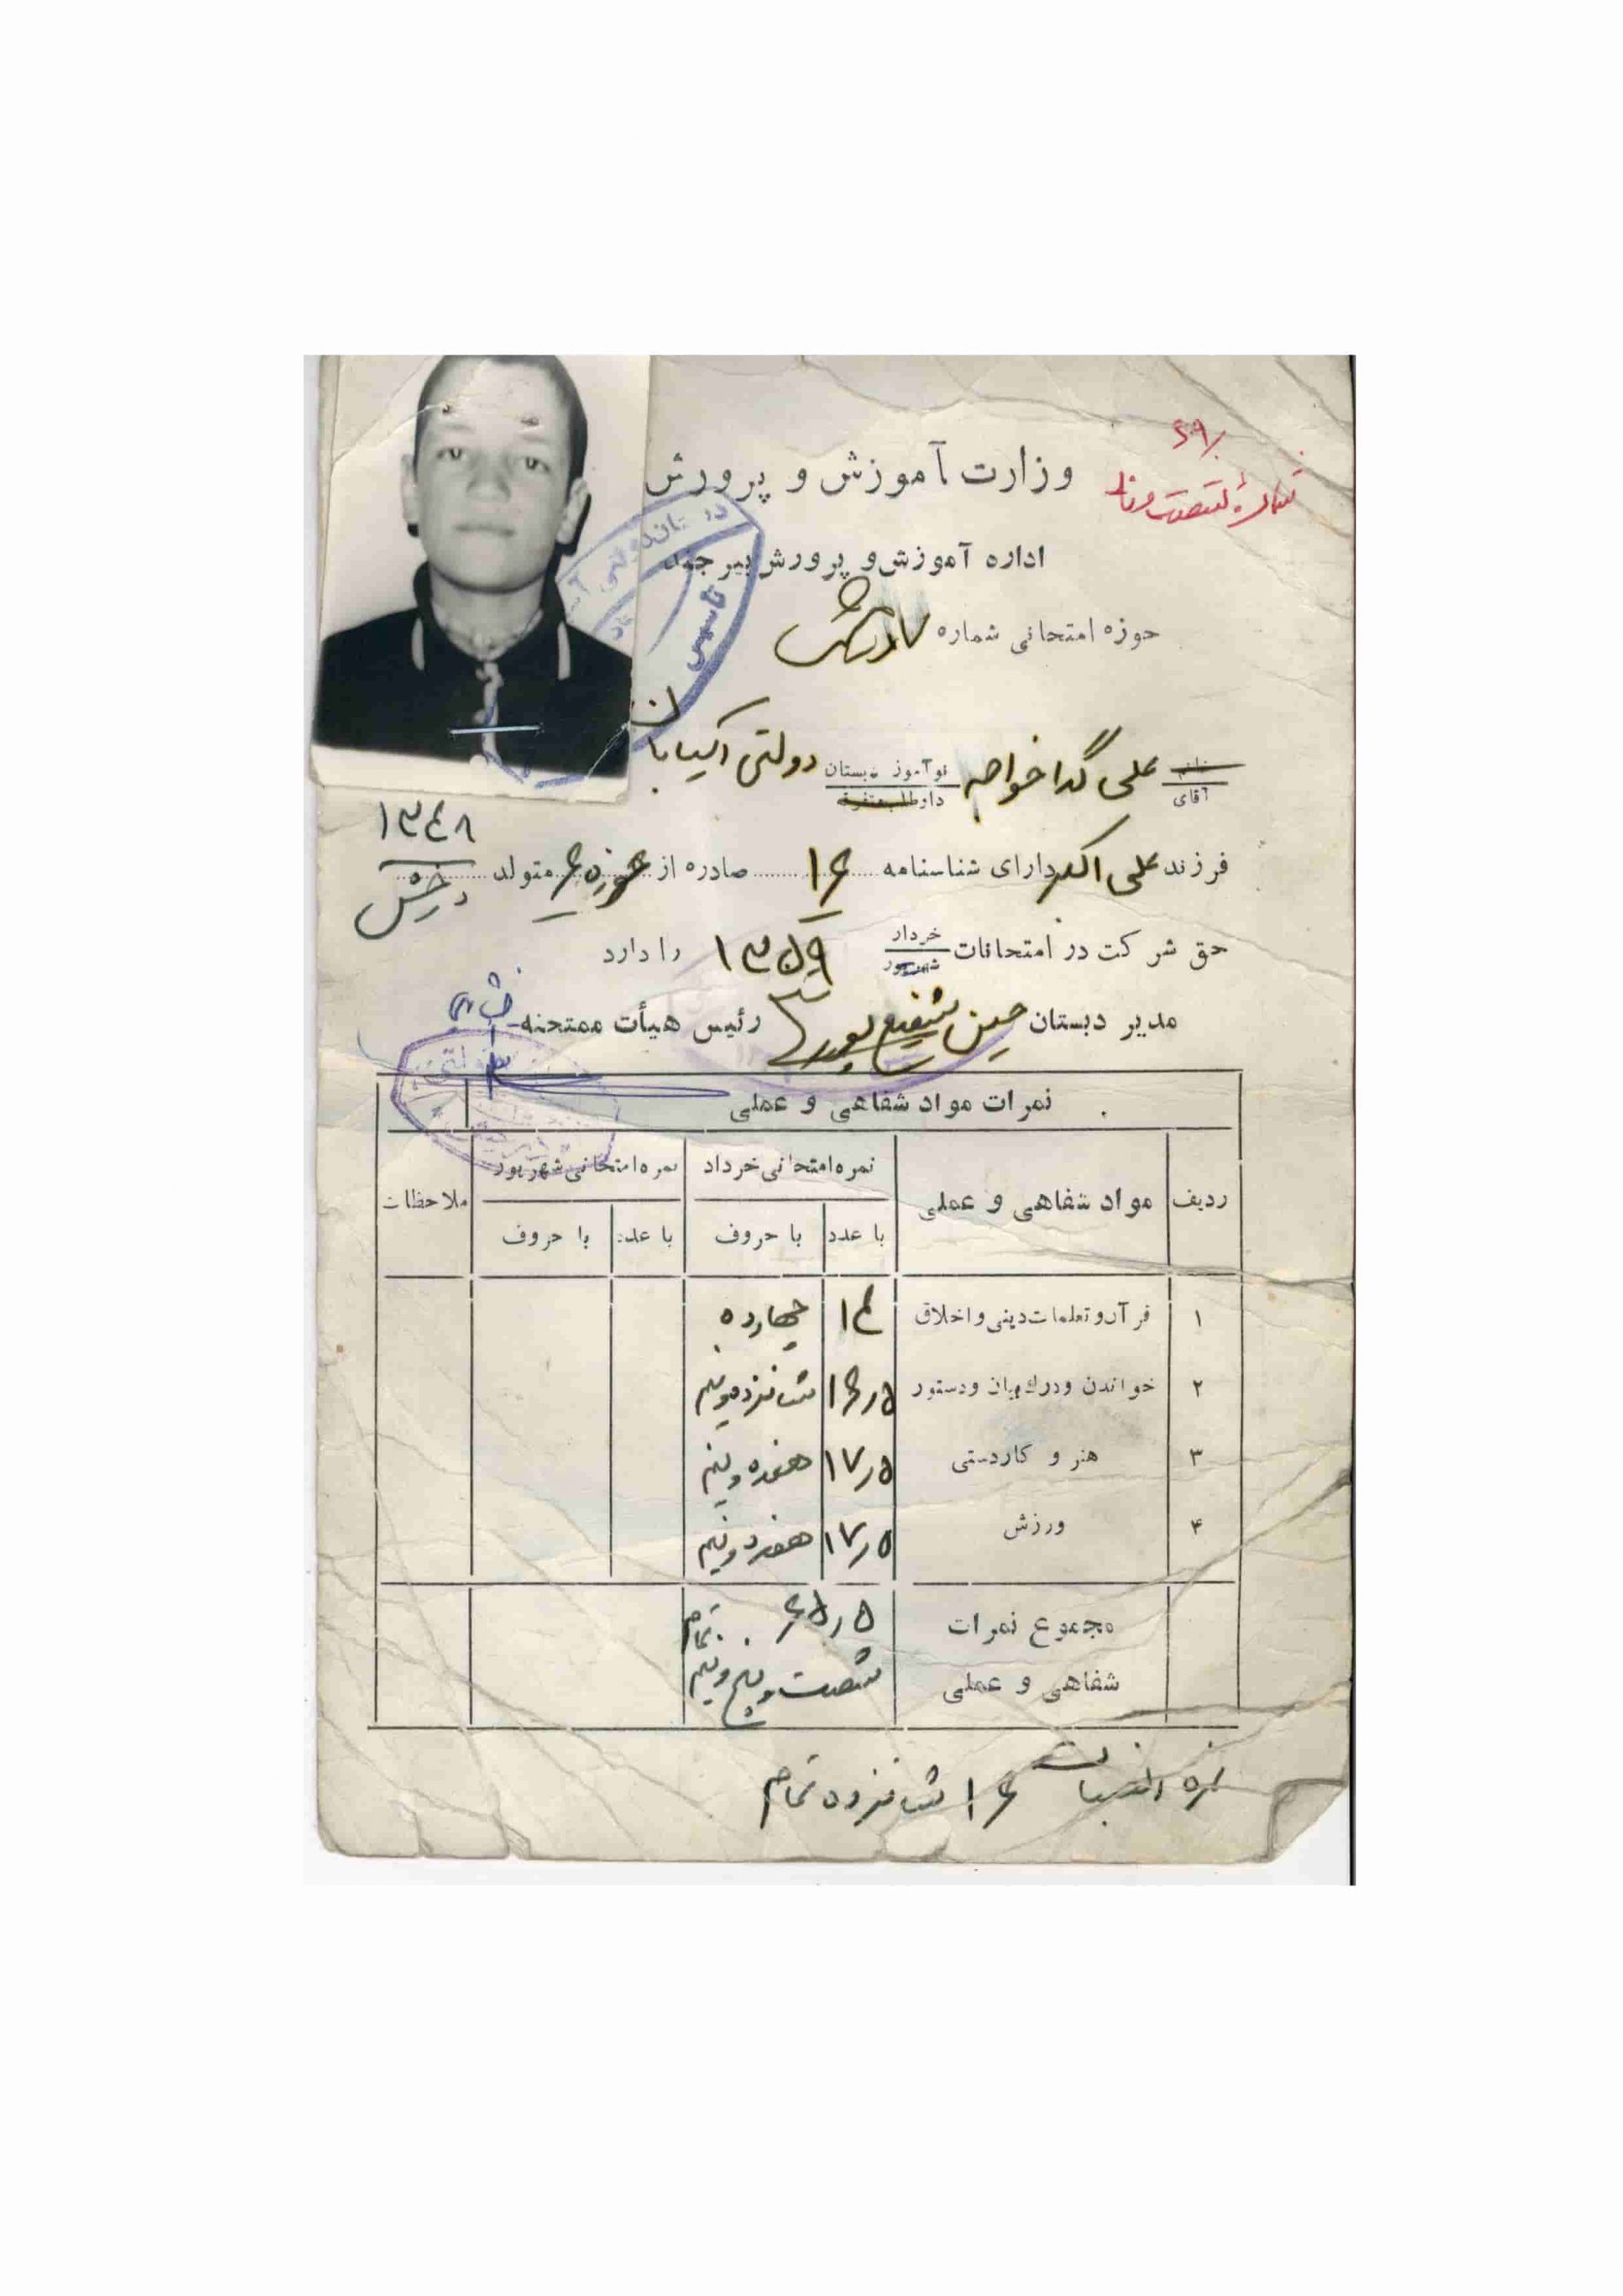 ۶۹/
شماره شصت و نه
وزارت آموزش و پرورش
اداره آموزش و پرورش بیرجند
حوزه امتحانی شماره ۷ درخش
تأسیس
خانم
آقای
علی گداخواجه
نوآموز دبستان
داوطلب متفرقه
دولتی آسیابان
۱۳۴۸
فرزند علی اکبر دارای شناسنامه ۱۶ صادره از حوزه ۶ متولد درخش
حق شرکت در امتحانات
خرداد
شهریور
۱۳۵۹ را دارد
مدیر دبستان حسین شفیع پور رئیس هیأت ممتحنه
نمرات مواد شفاهی و عملی
ردیف مواد شفاهی و عملی نمره امتحانی خرداد نمره امتحانی شهریور ملاحظات
با عدد با حروف با عدد با حروف
۱ قرآن و تعلیمات دینی و اخلاق ۱۴ چهارده
۲ خواندن و درک و بیان و دستور ۱۶/۵ شانزده و نیم
۳ هنر و کاردستی ۱۷/۵ هفده و نیم
۴ ورزش ۱۷/۵ هفده و نیم
مجموع نمرات ۶۵/۵ تمام
شفاهی و عملی شصت و پنج و نیم
نمره انضباط ۱۶ شانزده تمام